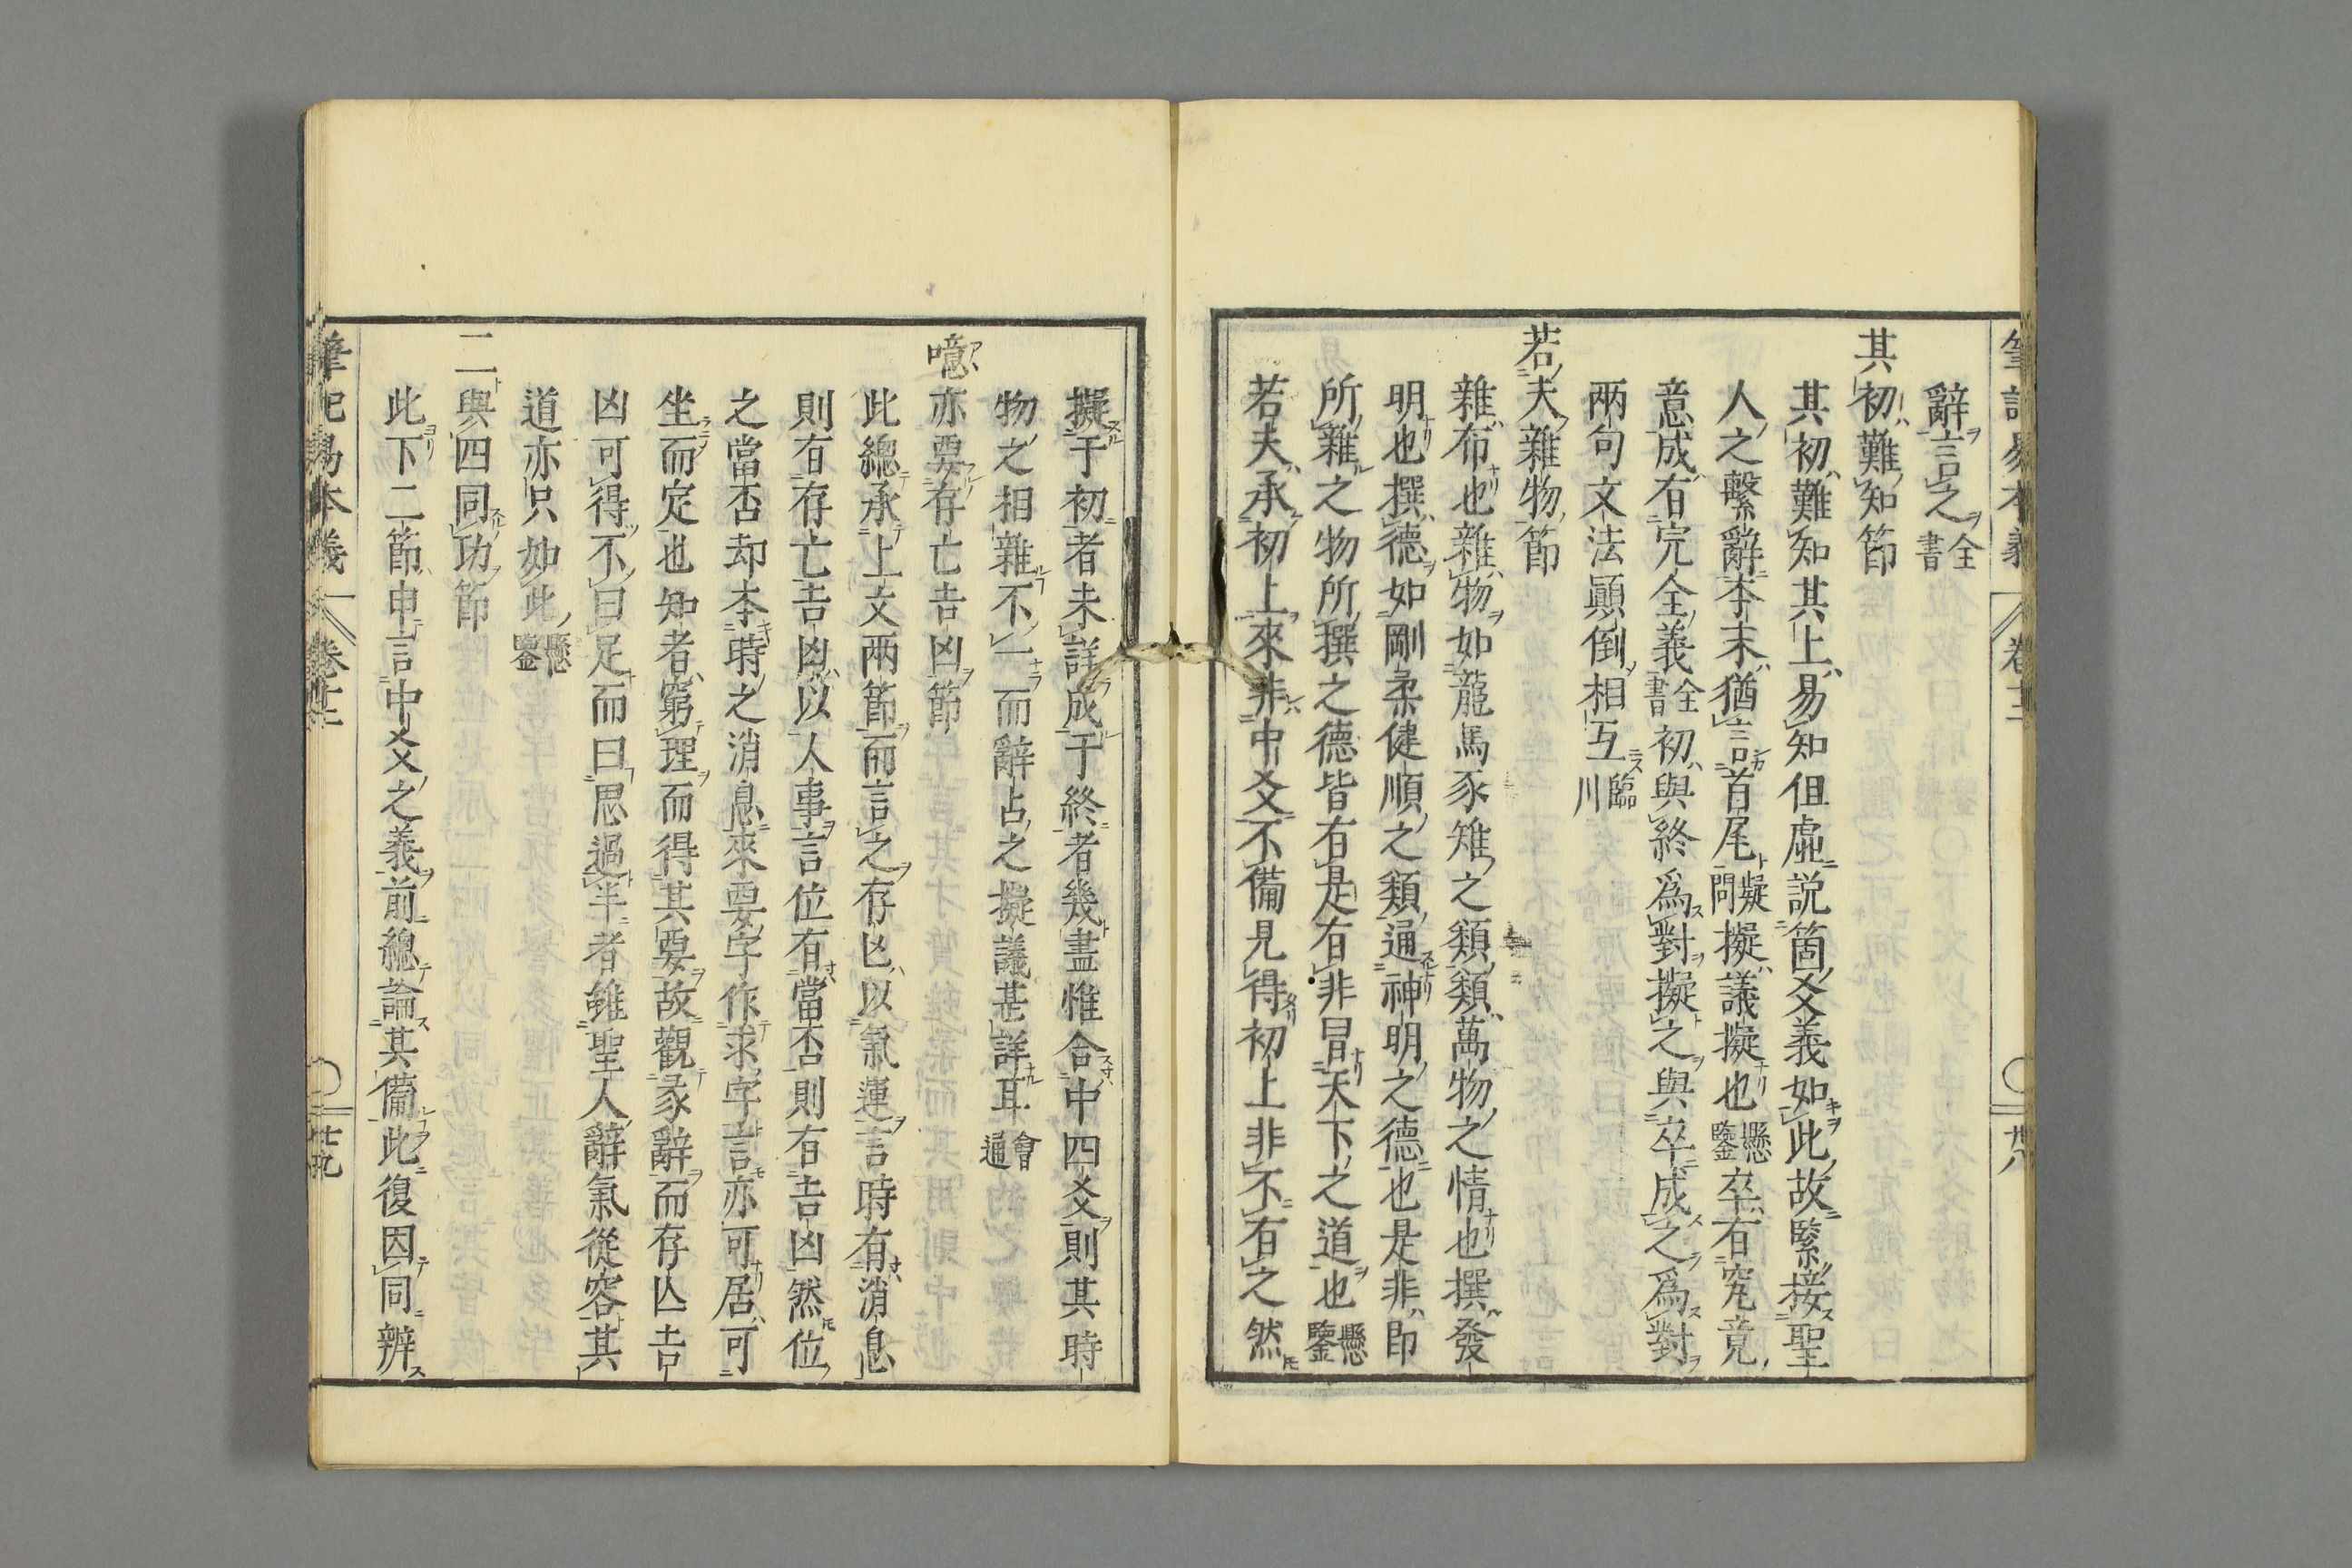 筆記易本義 卷十二 廿八
辭言之全書
其初難知節
其初難知其上易知但虛說箇爻義如此故緊接聖
人之繫辭本末猶言首尾疑問擬議擬也懸鑒卒有究竟
意成有完全義全書初與終為對擬之與卒成之為對
兩句文法顛倒相互臨川
若夫雜物節
雜布也雜物如龍馬豕雉之類類萬物之情也撰發
明也撰德如剛柔健順之類通神明之德也是非即
所雜之物所撰之德皆有是有非冒天下之道也懸鑒
若夫承初上來非中爻不備見得初上非不有之然
擬于初者未詳成于終者幾盡惟合中四爻則其時
物之相雜不一而辭占之擬議甚詳耳會通
噫亦要存亡吉凶節
此總承上文兩節而言之存亡以氣運言時有消息
則有存亡吉凶以人事言位有當否則有吉凶然位
之當否却本時之消息來要字作求字言亦可居可
坐而定也知者窮理而得其要故觀彖辭而存亡吉
凶可得不曰足而曰思過半者雖聖人辭氣從容其
道亦只如此懸鑒
二與四同功節
此下二節申言中爻之義前總論其備此復因同辨
筆記易本義 卷十二 廿九